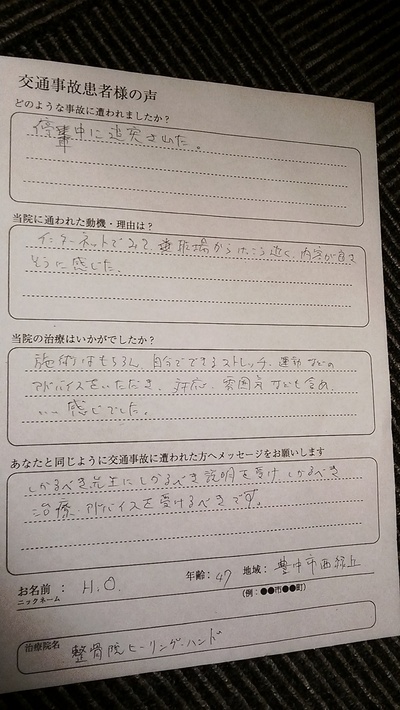 交通事故患者様の声
どのような事故に遭われましたか？
停車中に追突された。
当院に通われた動機・理由は？
インターネットでみて、から けっこう近く、内容が良さ
そうに感じた。
当院の治療はいかがでしたか？
施術はもちろん、自分でできるストレッチ、運動などの
アドバイスをいただき、対応、雰囲気なども含め、
いい感じでした。
あなたと同じように交通事故に遭われた方へメッセージをお願いします
しかるべき先生にしかるべき説明を受け、しかるべき
治療、アドバイスを受けるべきです。
お名前： H.O. 年齢：47 地域：豊中市西緑丘
ニックネーム （例：●●市●●町）
治療院名 整骨院ヒーリング・ハンド